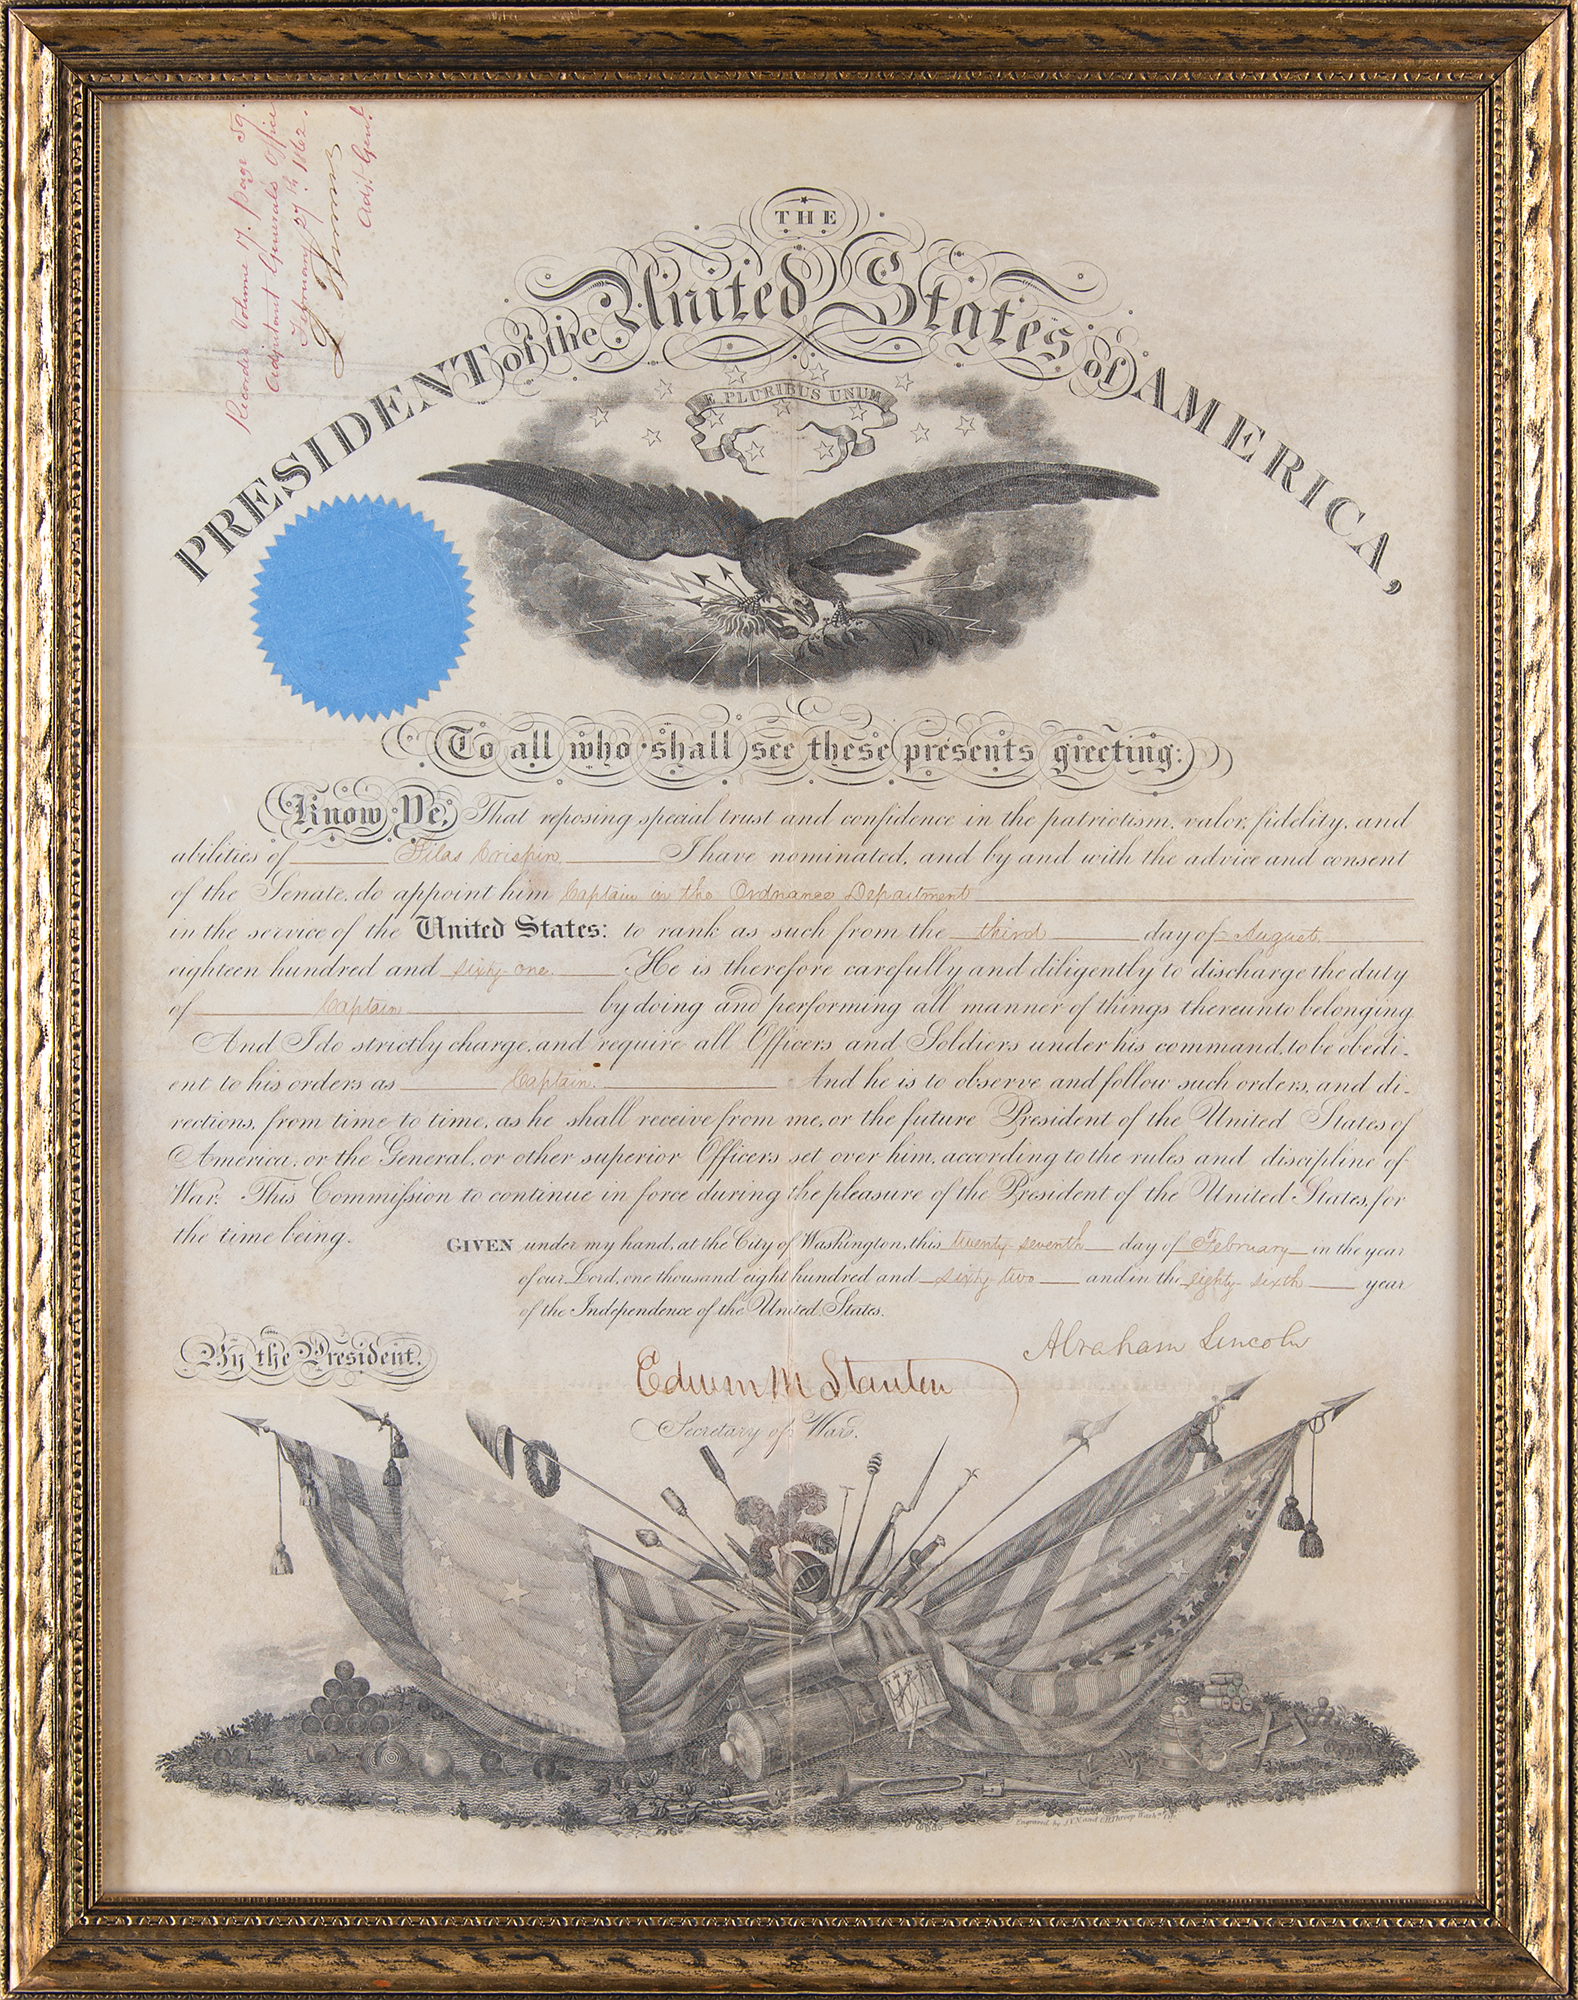 Recorded Volume 7. page 59.
Adjutant Generals Office
February 27th 1862.
L Thomas
Adjt Genl
THE
PRESIDENT of the United States of AMERICA,
E PLURIBUS UNUM
To all who shall see these presents greeting:
Know Ye, That reposing special trust and confidence in the patriotism, valor, fidelity, and
abilities of Silas Crispin, I have nominated, and by and with the advice and consent
of the Senate, do appoint him Captain in the Ordnance Department
in the service of the United States: to rank as such from the third day of August,
eighteen hundred and sixty-one. He is therefore carefully and diligently to discharge the duty
of Captain by doing and performing all manner of things thereunto belonging.
And I do strictly charge, and require all Officers and Soldiers under his command, to be obedi-
ent to his orders as Captain. And he is to observe and follow such orders, and di-
rections, from time to time, as he shall receive from me, or the future President of the United States of
America, or the General, or other superior Officers set over him, according to the rules and discipline of
War. This Commission to continue in force during the pleasure of the President of the United States, for
the time being.
GIVEN under my hand, at the City of Washington, this twenty-seventh day of February in the year
of our Lord, one thousand eight hundred and sixty-two and in the eighty-sixth year
of the Independence of the United States.
By the President.
Abraham Lincoln
Edwin M Stanton
Secretary of War.
Engraved by J.V.N. and O.H. Throop Washn. D.C.